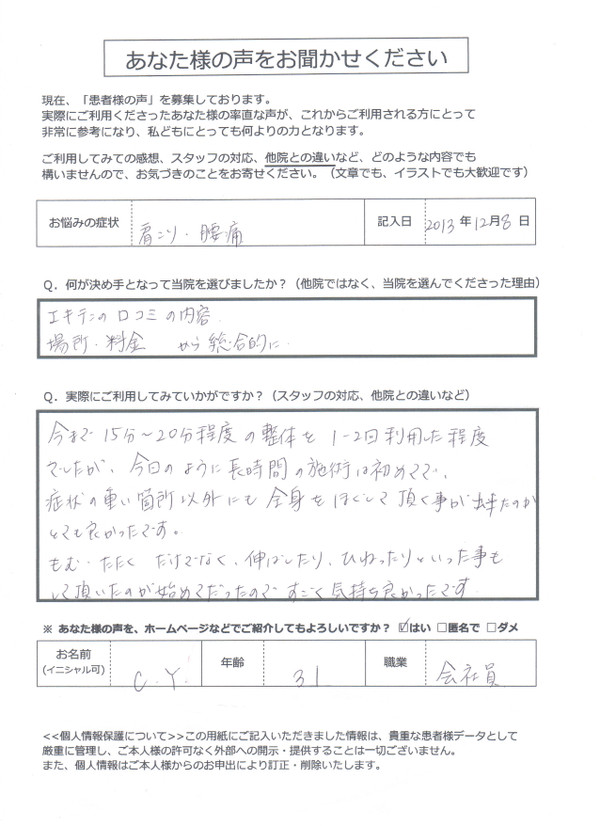 あなた様の声をお聞かせください
現在、「患者様の声」を募集しております。
実際にご利用くださったあなた様の率直な声が、これからご利用される方にとって
非常に参考になり、私どもにとっても何よりの力となります。
ご利用してみての感想、スタッフの対応、他院との違いなど、どのような内容でも
構いませんので、お気づきのことをお寄せください。（文章でも、イラストでも大歓迎です）
お悩みの症状 肩こり・腰痛 記入日 2013年12月8日
Q．何が決め手となって当院を選びましたか？（他院ではなく、当院を選んでくださった理由）
エキテンの口コミの内容
場所・料金 から総合的に
Q．実際にご利用してみていかがですか？（スタッフの対応、他院との違いなど）
今まで15分～20分程度の整体を1-2回利用した程度
でしたが、今日のように長時間の施術は初めてで、
症状の重い箇所以外にも全身をほぐして頂く事が出来たのが
とても良かったです。
もむ・たたくだけでなく、伸ばしたり、ひねったりといった事も
して頂いたのが始めてだったのですごく気持ち良かったです
※ あなた様の声を、ホームページなどでご紹介してもよろしいですか？ ☑はい □匿名で □ダメ
お名前
(イニシャル可) C.Y. 年齢 31 職業 会社員
<<個人情報保護について>>この用紙にご記入いただきました情報は、貴重な患者様データとして
厳重に管理し、ご本人様の許可なく外部への開示・提供することは一切ございません。
また、個人情報はご本人様からのお申出により訂正・削除いたします。